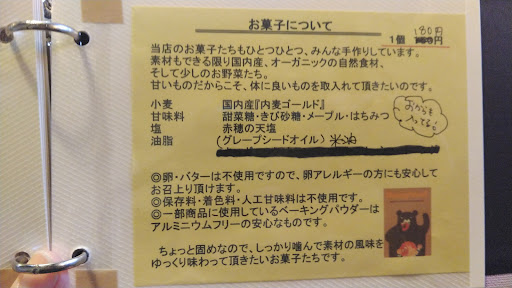 お菓子について
180円
1個
当店のお菓子たちもひとつひとつ、みんな手作りしています。
素材もできる限り国内産、オーガニックの自然食材、
そして少しのお野菜たち。
甘いものだからこそ、体に良いものを取入れて頂きたいのです。
小麦 国内産『内麦ゴールド』
甘味料 甜菜糖・きび砂糖・メープル・はちみつ
塩 赤穂の天塩
油脂 (グレープシードオイル) 米油
おからも
入ってる♪
◎卵・バターは不使用ですので、卵アレルギーの方にも安心して
お召上り頂けます。
◎保存料・着色料・人工甘味料は不使用です。
◎一部商品に使用しているベーキングパウダーは
アルミニウムフリーの安心なものです。
ちょっと固めなので、しっかり噛んで素材の風味を
ゆっくり味わって頂きたいお菓子たちです。